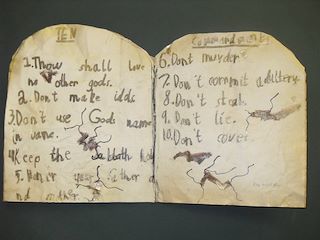 TEN
1. Thow shall love
no other gods.
2. Don't make idds
3. Don't use Gods name
in vane.
4. Keep the Sabbath hol
5. Honer your father
nd mother
Commandments
6. Dont murder
7. Don't commit adultery
8. Don't steal
9. Don't lie.
10. Don't covet